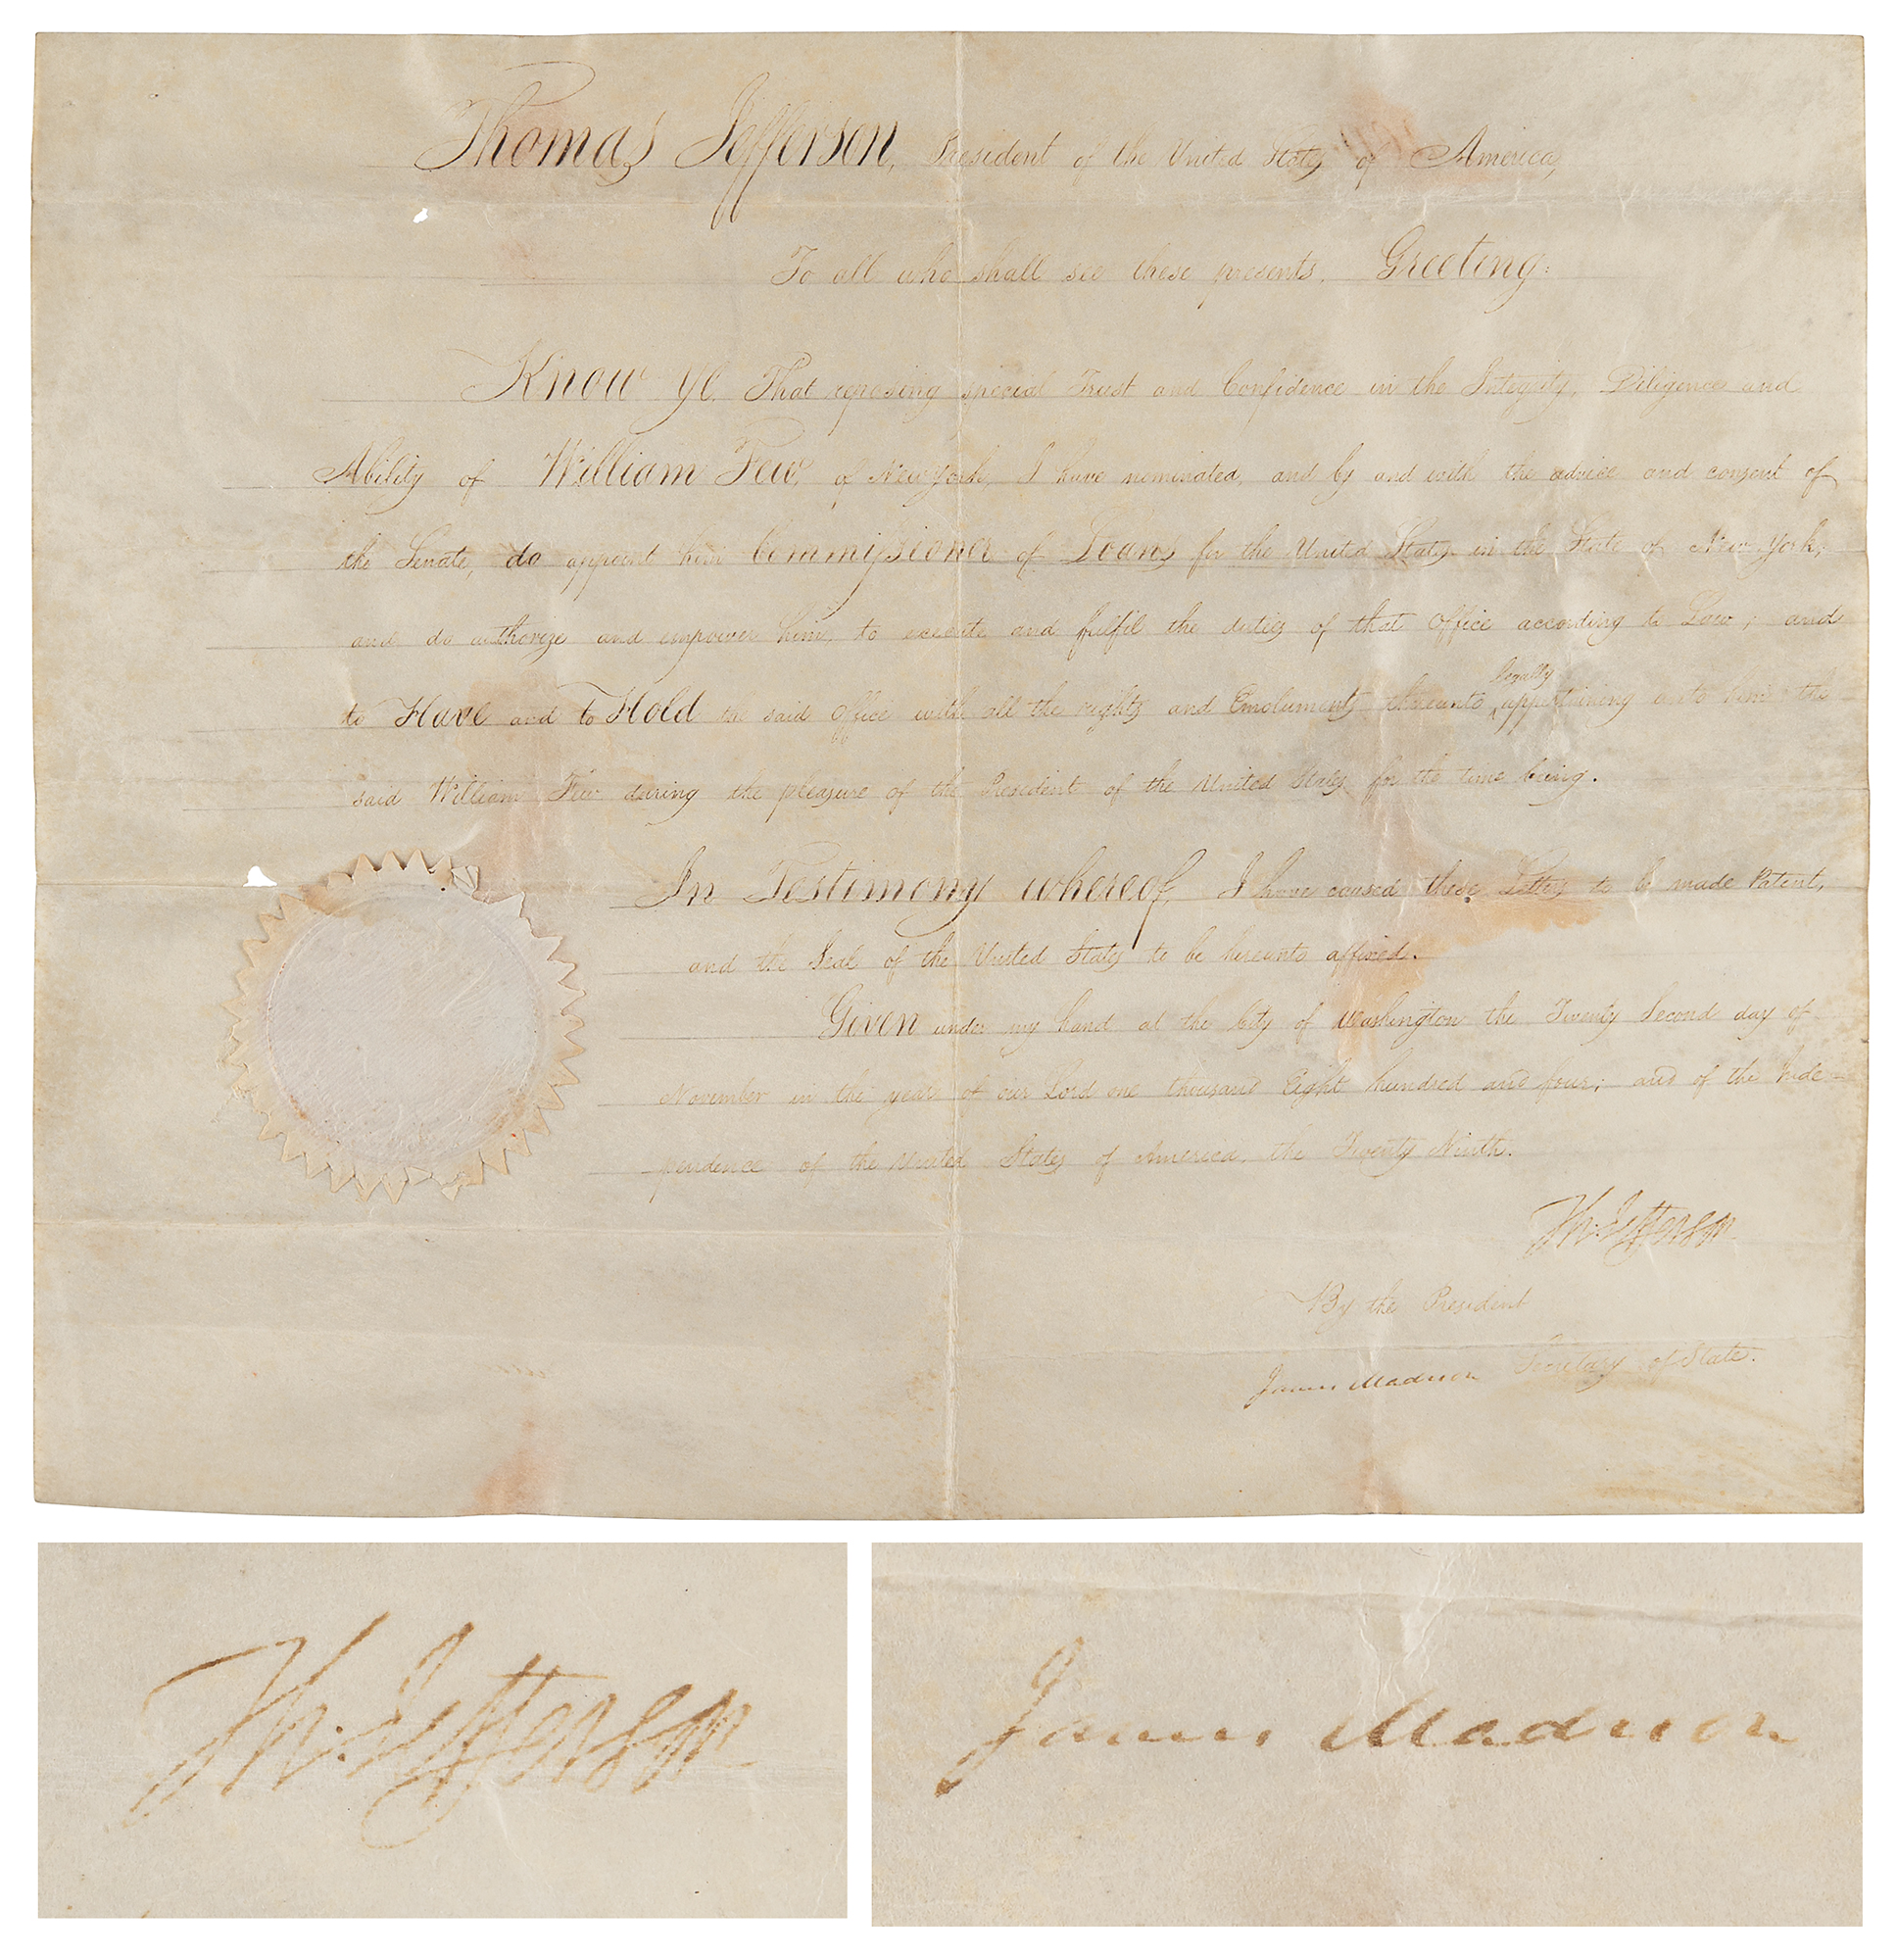 Thomas Jefferson, President of the United States of America,
To all who shall see these presents, Greeting:
Know Ye, That reposing special Trust and Confidence in the Integrity, Diligence and
Ability of William Few, of New York, I have nominated, and by and with the advice and consent of
the Senate, do appoint him Commissioner of Loans for the United States in the State of New York;
and do authorize and empower him, to execute and fulfil the duties of that Office according to Law; and
legally
to Have and to Hold the said Office with all the rights and Emoluments thereunto appertaining unto him the
said William Few during the pleasure of the President of the United States for the time being.
In Testimony whereof, I have caused these Letters to be made Patent,
and the Seal of the United States to be hereunto affixed.
Given under my hand at the City of Washington the Twenty Second day of
November in the year of our Lord one thousand Eight hundred and four; and of the Inde-
pendence of the United States of America, the Twenty Ninth.
Th: Jefferson
By the President
James Madison Secretary of State.
Th: Jefferson
James Madison